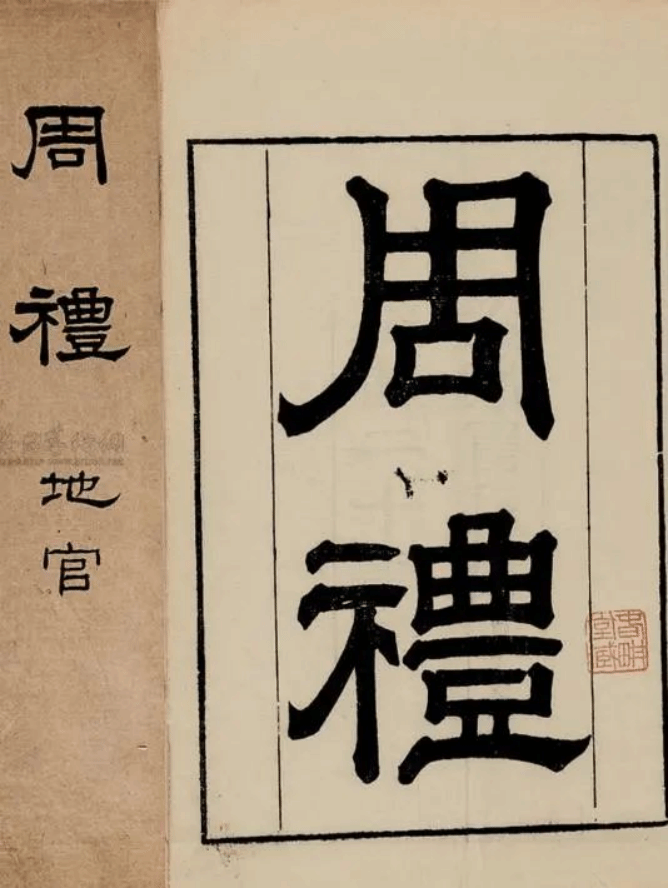 周禮
地官
周禮